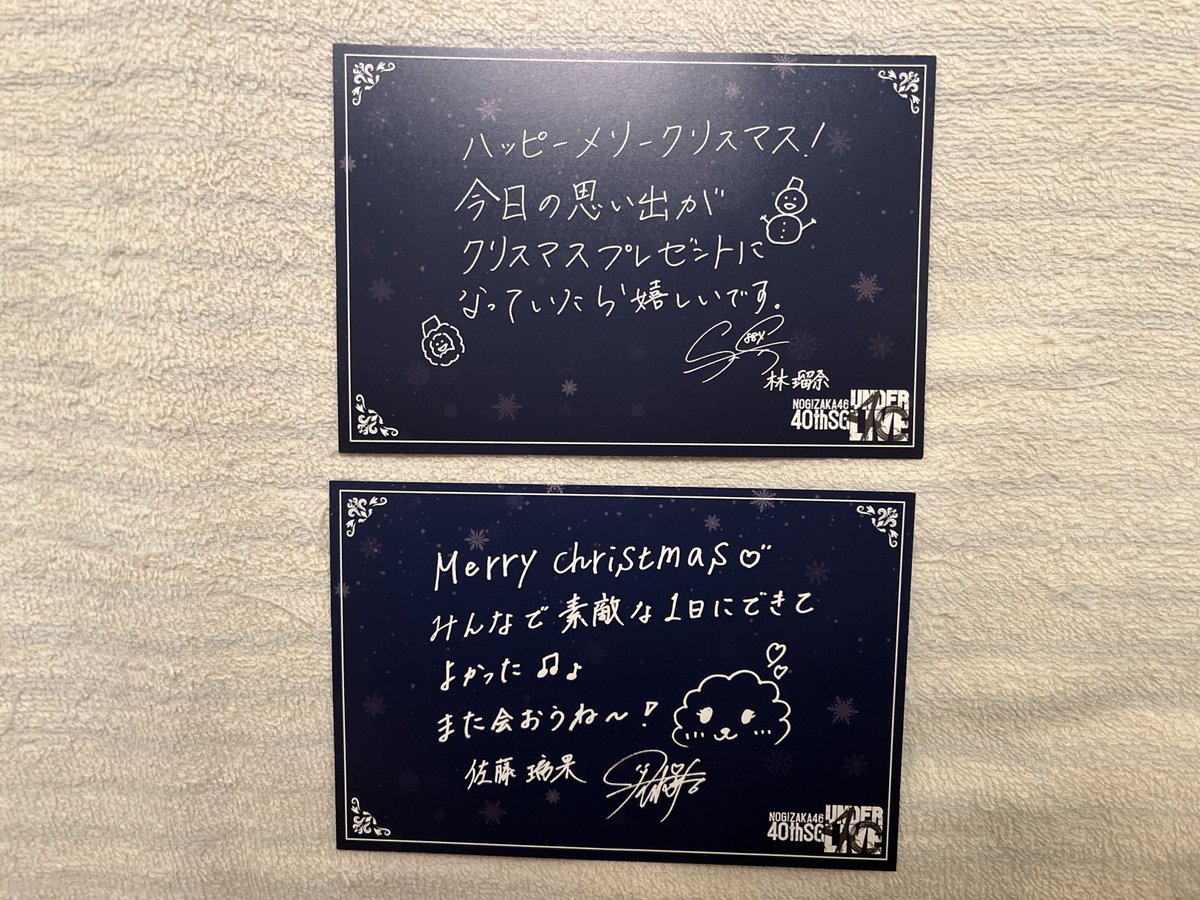 ハッピーメリークリスマス!
今日の思い出が
クリスマスプレゼントに
なっていたら嬉しいです。
林瑠奈
NOGIZAKA46
40thSG
UNDER
LIVE
Merry christmas♡
みんなで素敵な1日にできて
よかった♫♪
また会おうね〜!
佐藤璃果
NOGIZAKA46
40thSG
UNDER
LIVE